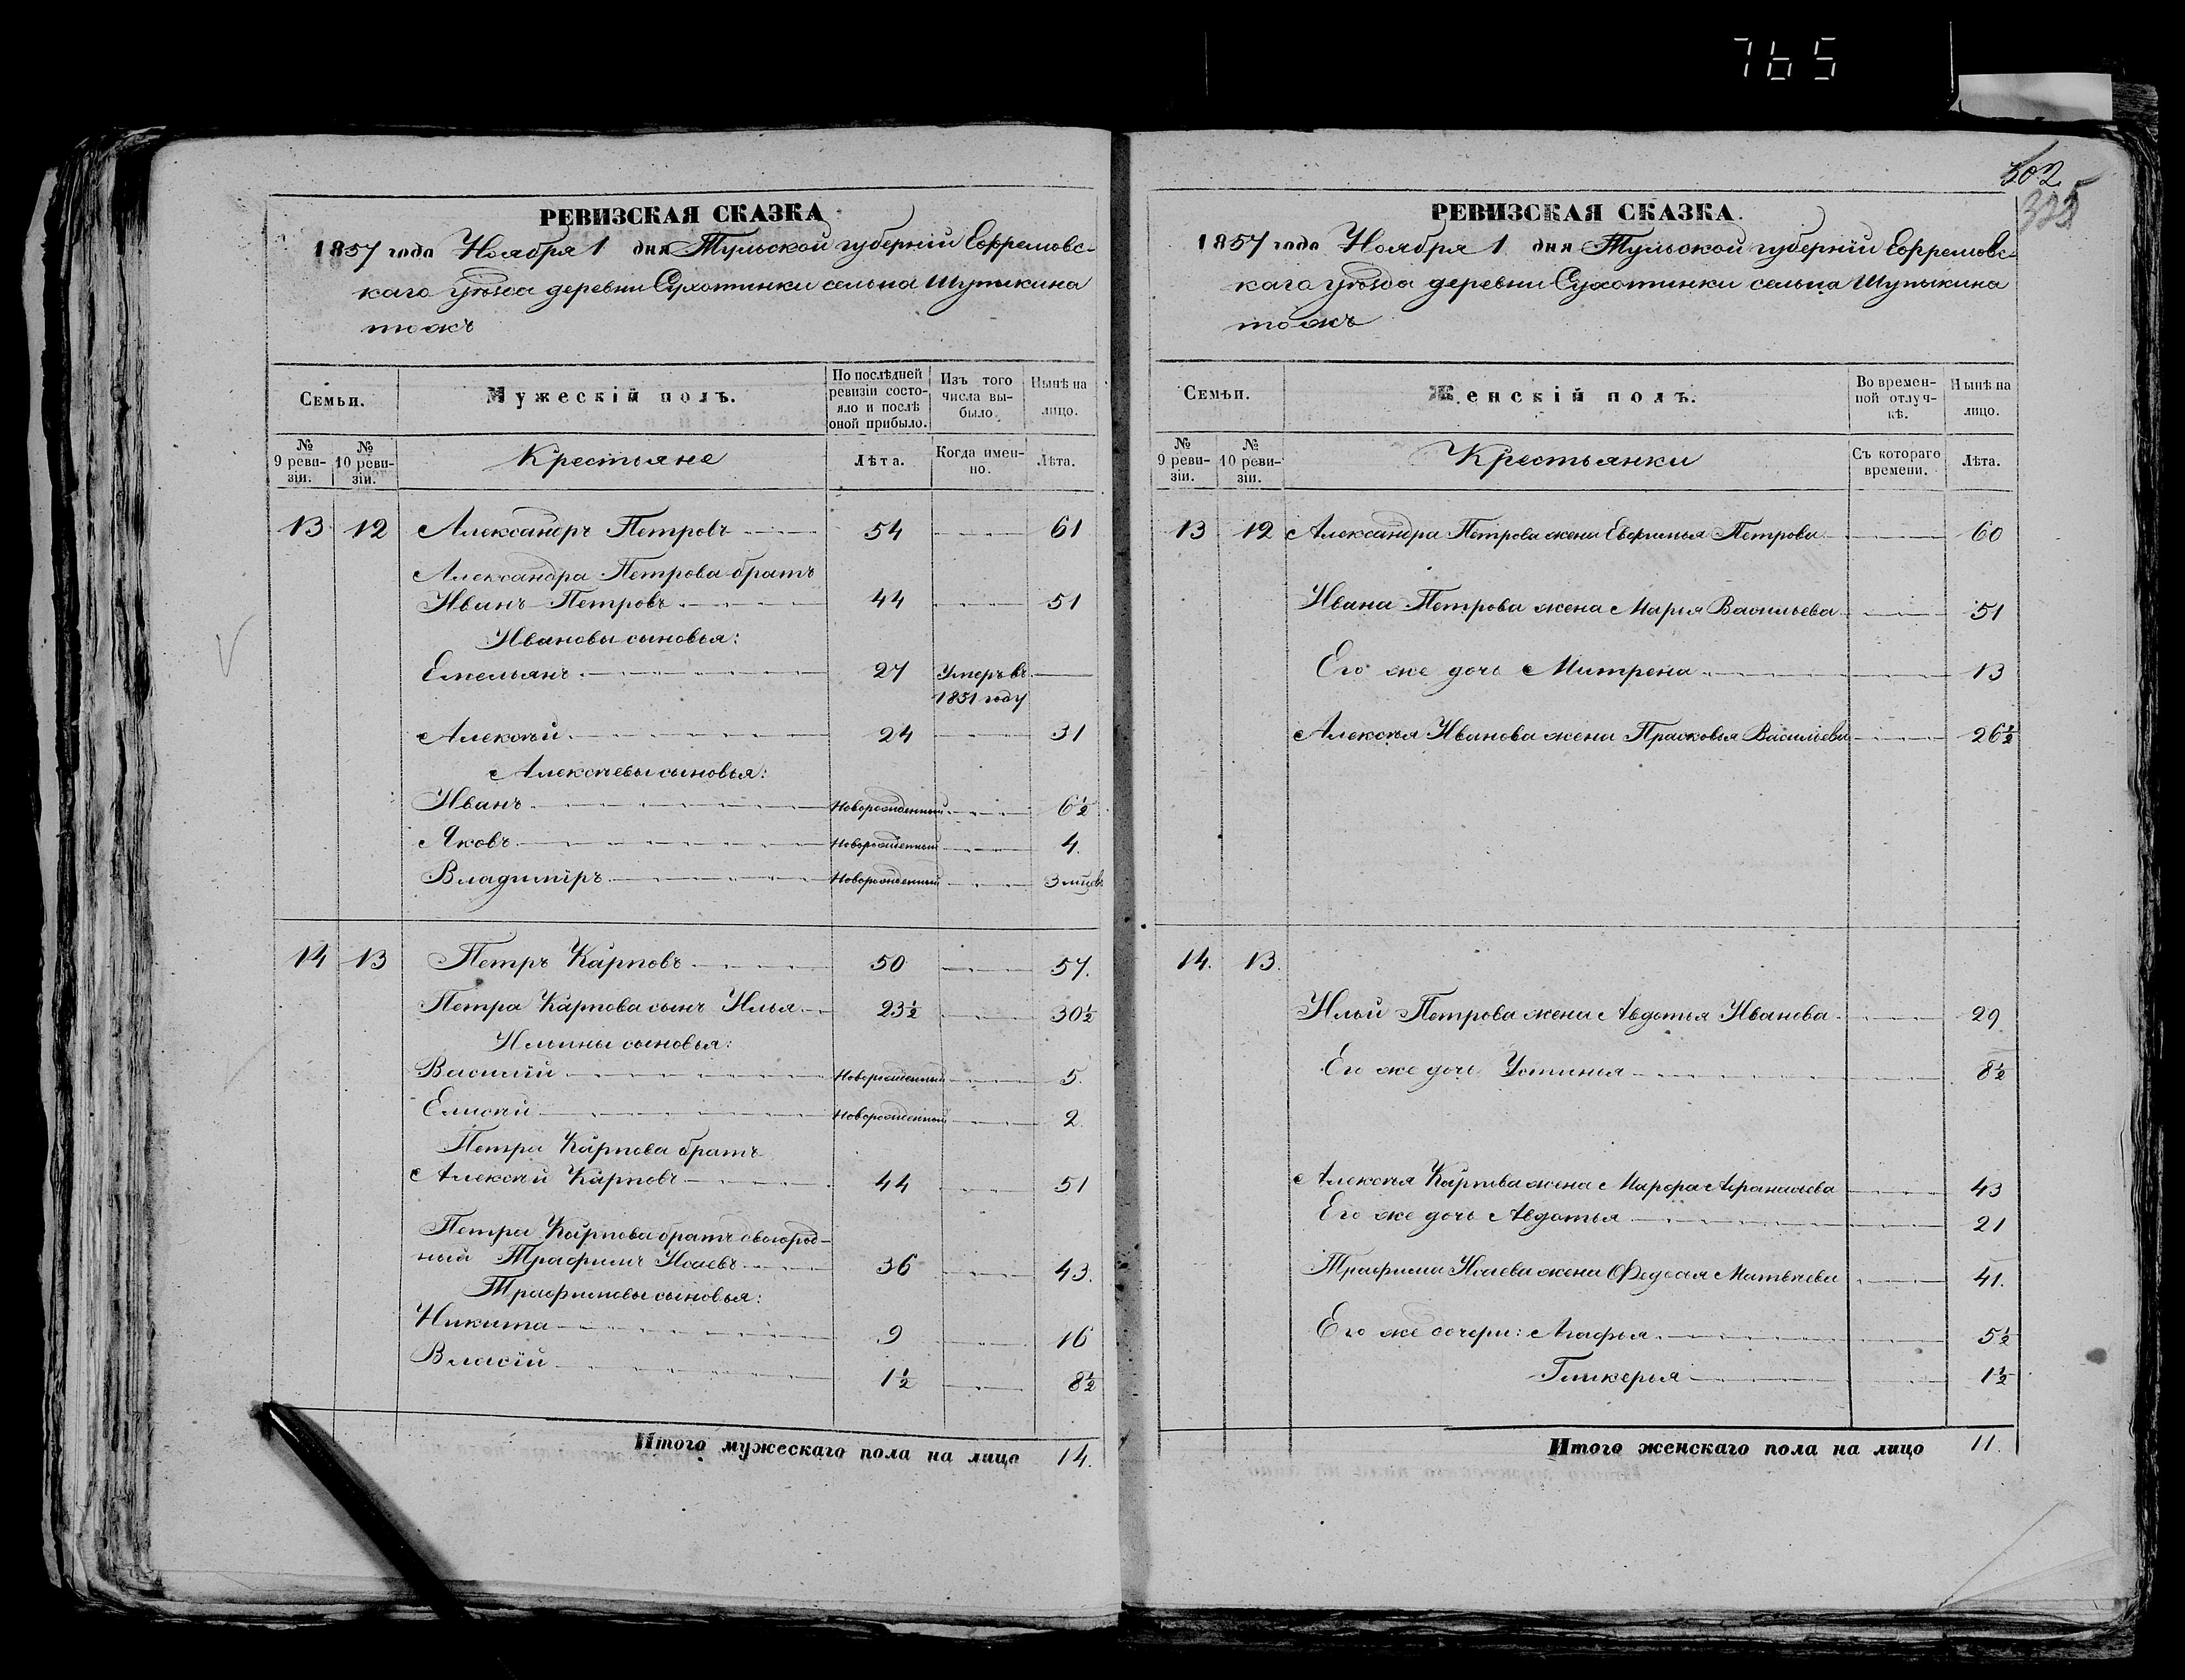 765
302
325
РЕВИЗСКАЯ СКАЗКА
1857 года Ноября 1 дня Тульской губерніи Ефремовс-
каго уѣзда деревни Сухотинки сельца Шупыкина
тожъ
Семьи.
Мужескій полъ.
По послѣдней ревизіи состо-
яло и послѣ
оной прибыло.
Изъ того
числа вы-
было.
Нынѣ на
лицо.
№
9 реви-
зіи.
№
10 реви-
зіи.
Крестьяне
Лѣта.
Когда имен-
но.
Лѣта.
13 12 Александръ Петровъ 54 61
Александра Петрова братъ
Иванъ Петровъ 44 51
Ивановы сыновья:
Емельянъ 27 Умеръ въ
1851 году
Алексѣй 24 31
Алексѣевы сыновья:
Иванъ Новорожденный 6½
Яковъ Новорожденный 4.
Владиміръ Новорожденный 3 мѣсяц.
14 13 Петръ Карповъ 50 57.
Петра Карпова сынъ Илья 23½ 30½
Ильины сыновья:
Василій Новорожденный 5.
Елисѣй Новорожденный 2
Петра Карпова братъ
Алексѣй Карповъ 44 51
Петра Карпова братъ двоюрод-
ный Трафимъ Исаевъ 36 43.
Трафимовы сыновья:
Никита 9 16
Власій 1½ 8½
Итого мужескаго пола на лицо 14.
РЕВИЗСКАЯ СКАЗКА.
1857 года Ноября 1 дня Тульской губерніи Ефремовс-
каго уѣзда деревни Сухотинки сельца Шупыкина
тожъ
Семьи.
Женскій полъ.
Во времен-
ной отлуч-
кѣ.
Нынѣ на
лицо.
№
9 реви-
зіи.
№
10 реви-
зіи.
Крестьянки
Съ котораго
времени.
Лѣта.
13 12 Александра Петрова жена Евфимья Петрова 60
Ивана Петрова жена Марья Васильева 51
Его же дочь Митрена 13
Алексѣя Иванова жена Прасковья Васильева 26½
14. 13.
Ильи Петрова жена Авдотья Иванова 29
Его же дочь Устинья 8½
Алексѣя Карпова жена Марфа Афанасьева 43
Его же дочь Авдотья 21
Трафима Исаева жена Федосья Матвѣева 41.
Его же дочери: Агафья 5½
Гликерья 1½
Итого женскаго пола на лицо 11.